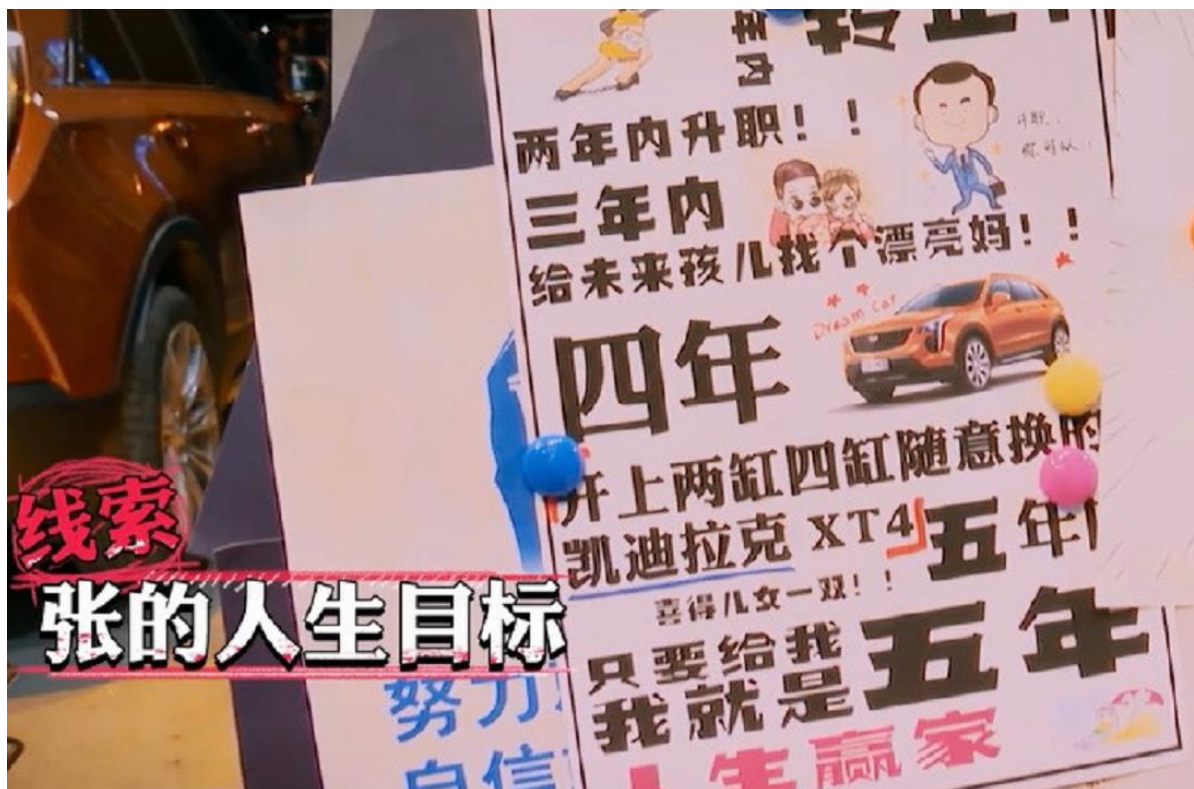 年内
转正！
两年内升职！！
升职！
三年内
给未来孩儿找个漂亮妈！！
Dream Car
四年
开上两缸四缸随意换的
凯迪拉克 XT4
五年内
喜得儿女一双！！
只要给我五年
我就是
人生赢家
线索
张的人生目标
努力
自信